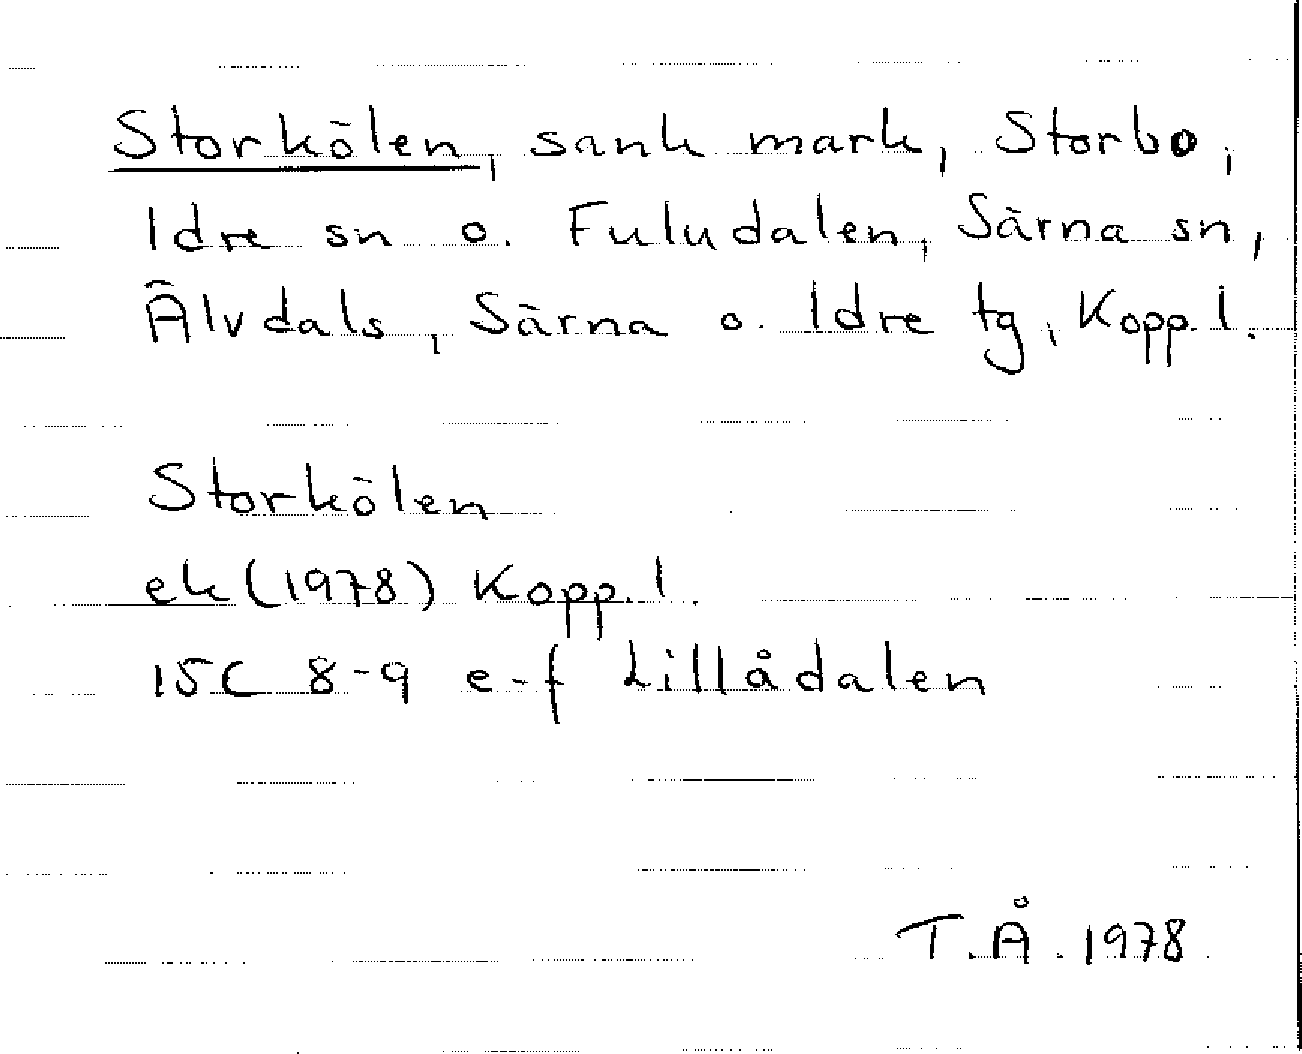 Storkölen, sank mark, Storbo,
Idre sn o. Fuludalen, Särna sn,
Älvdals, Särna o. Idre tg, Kopp. l.
Storkölen
ek (1978) Kopp. l.
15C 8-9 e-f Lillådalen
T.Å. 1978